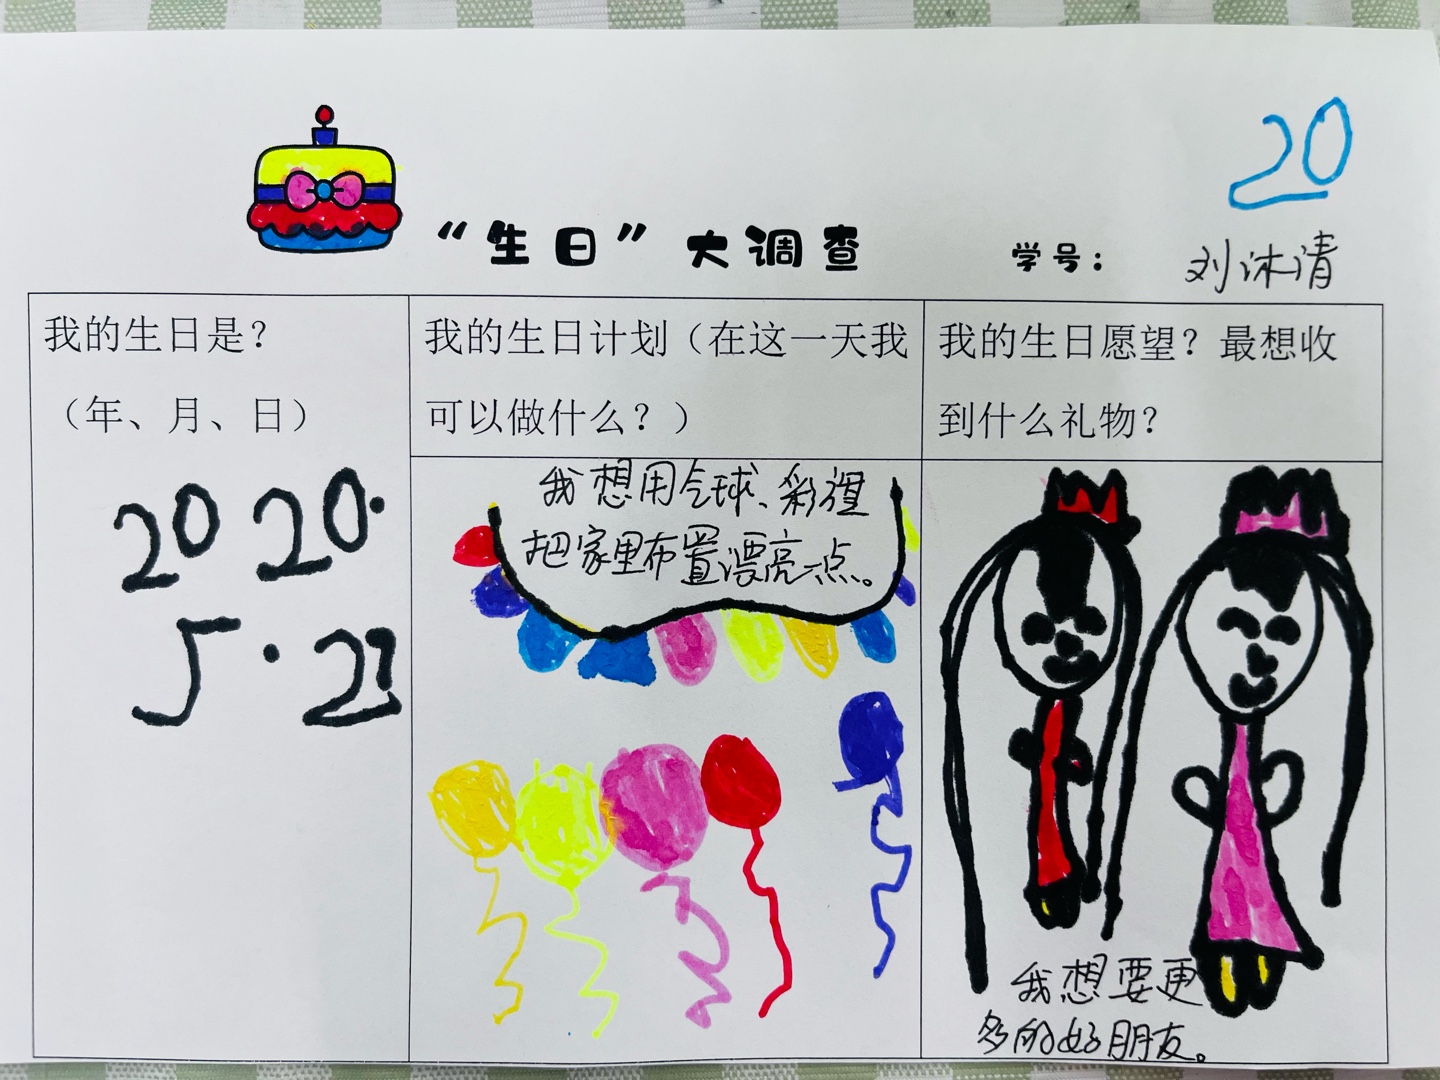 20
“生日”大调查
学号：
刘沐清
我的生日是？
（年、月、日）
2020.
5.23
我的生日计划（在这一天我
可以做什么？）
我想用气球、彩旗
把家里布置漂亮一点。
我的生日愿望？最想收
到什么礼物？
我想要更
多的好朋友。